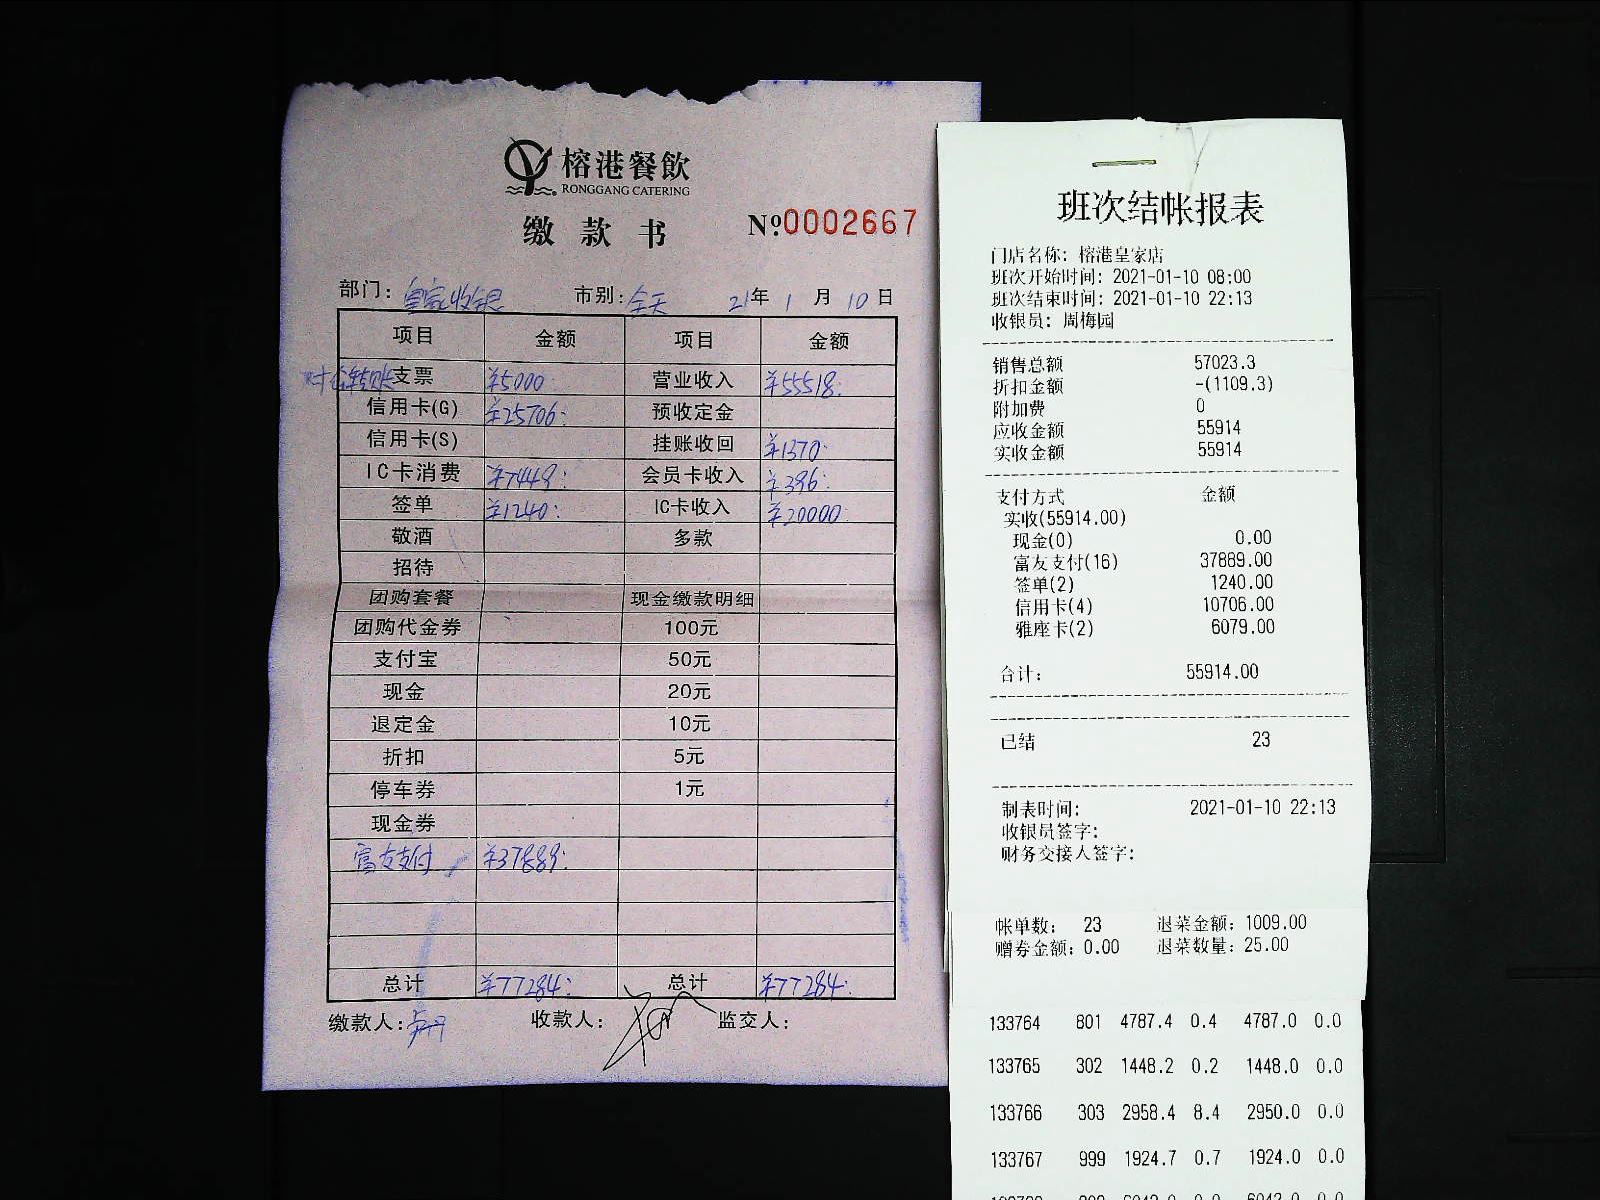 榕港餐飲
RONGGANG CATERING
缴款书 №0002667
部门：皇家收银 市别：全天 21年1月10日
项目 金额 项目 金额
对公转账支票 ¥5000 营业收入 ¥55518.
信用卡(G) ¥25706. 预收定金
信用卡(S) 挂账收回 ¥1370.
IC卡消费 ¥7449. 会员卡收入 ¥396.
签单 ¥1240. IC卡收入 ¥20000
敬酒 多款
招待
团购套餐 现金缴款明细
团购代金券 100元
支付宝 50元
现金 20元
退定金 10元
折扣 5元
停车券 1元
现金券
富友支付 ¥37889.
总计 ¥77284. 总计 ¥77284.
缴款人： 收款人： 监交人：
班次结帐报表
门店名称：榕港皇家店
班次开始时间：2021-01-10 08:00
班次结束时间：2021-01-10 22:13
收银员：周梅园
销售总额 57023.3
折扣金额 -(1109.3)
附加费 0
应收金额 55914
实收金额 55914
支付方式 金额
实收(55914.00)
现金(0) 0.00
富友支付(16) 37889.00
签单(2) 1240.00
信用卡(4) 10706.00
雅座卡(2) 6079.00
合计： 55914.00
已结 23
制表时间： 2021-01-10 22:13
收银员签字：
财务交接人签字：
帐单数： 23 退菜金额：1009.00
赠券金额：0.00 退菜数量：25.00
133764 801 4787.4 0.4 4787.0 0.0
133765 302 1448.2 0.2 1448.0 0.0
133766 303 2958.4 8.4 2950.0 0.0
133767 999 1924.7 0.7 1924.0 0.0